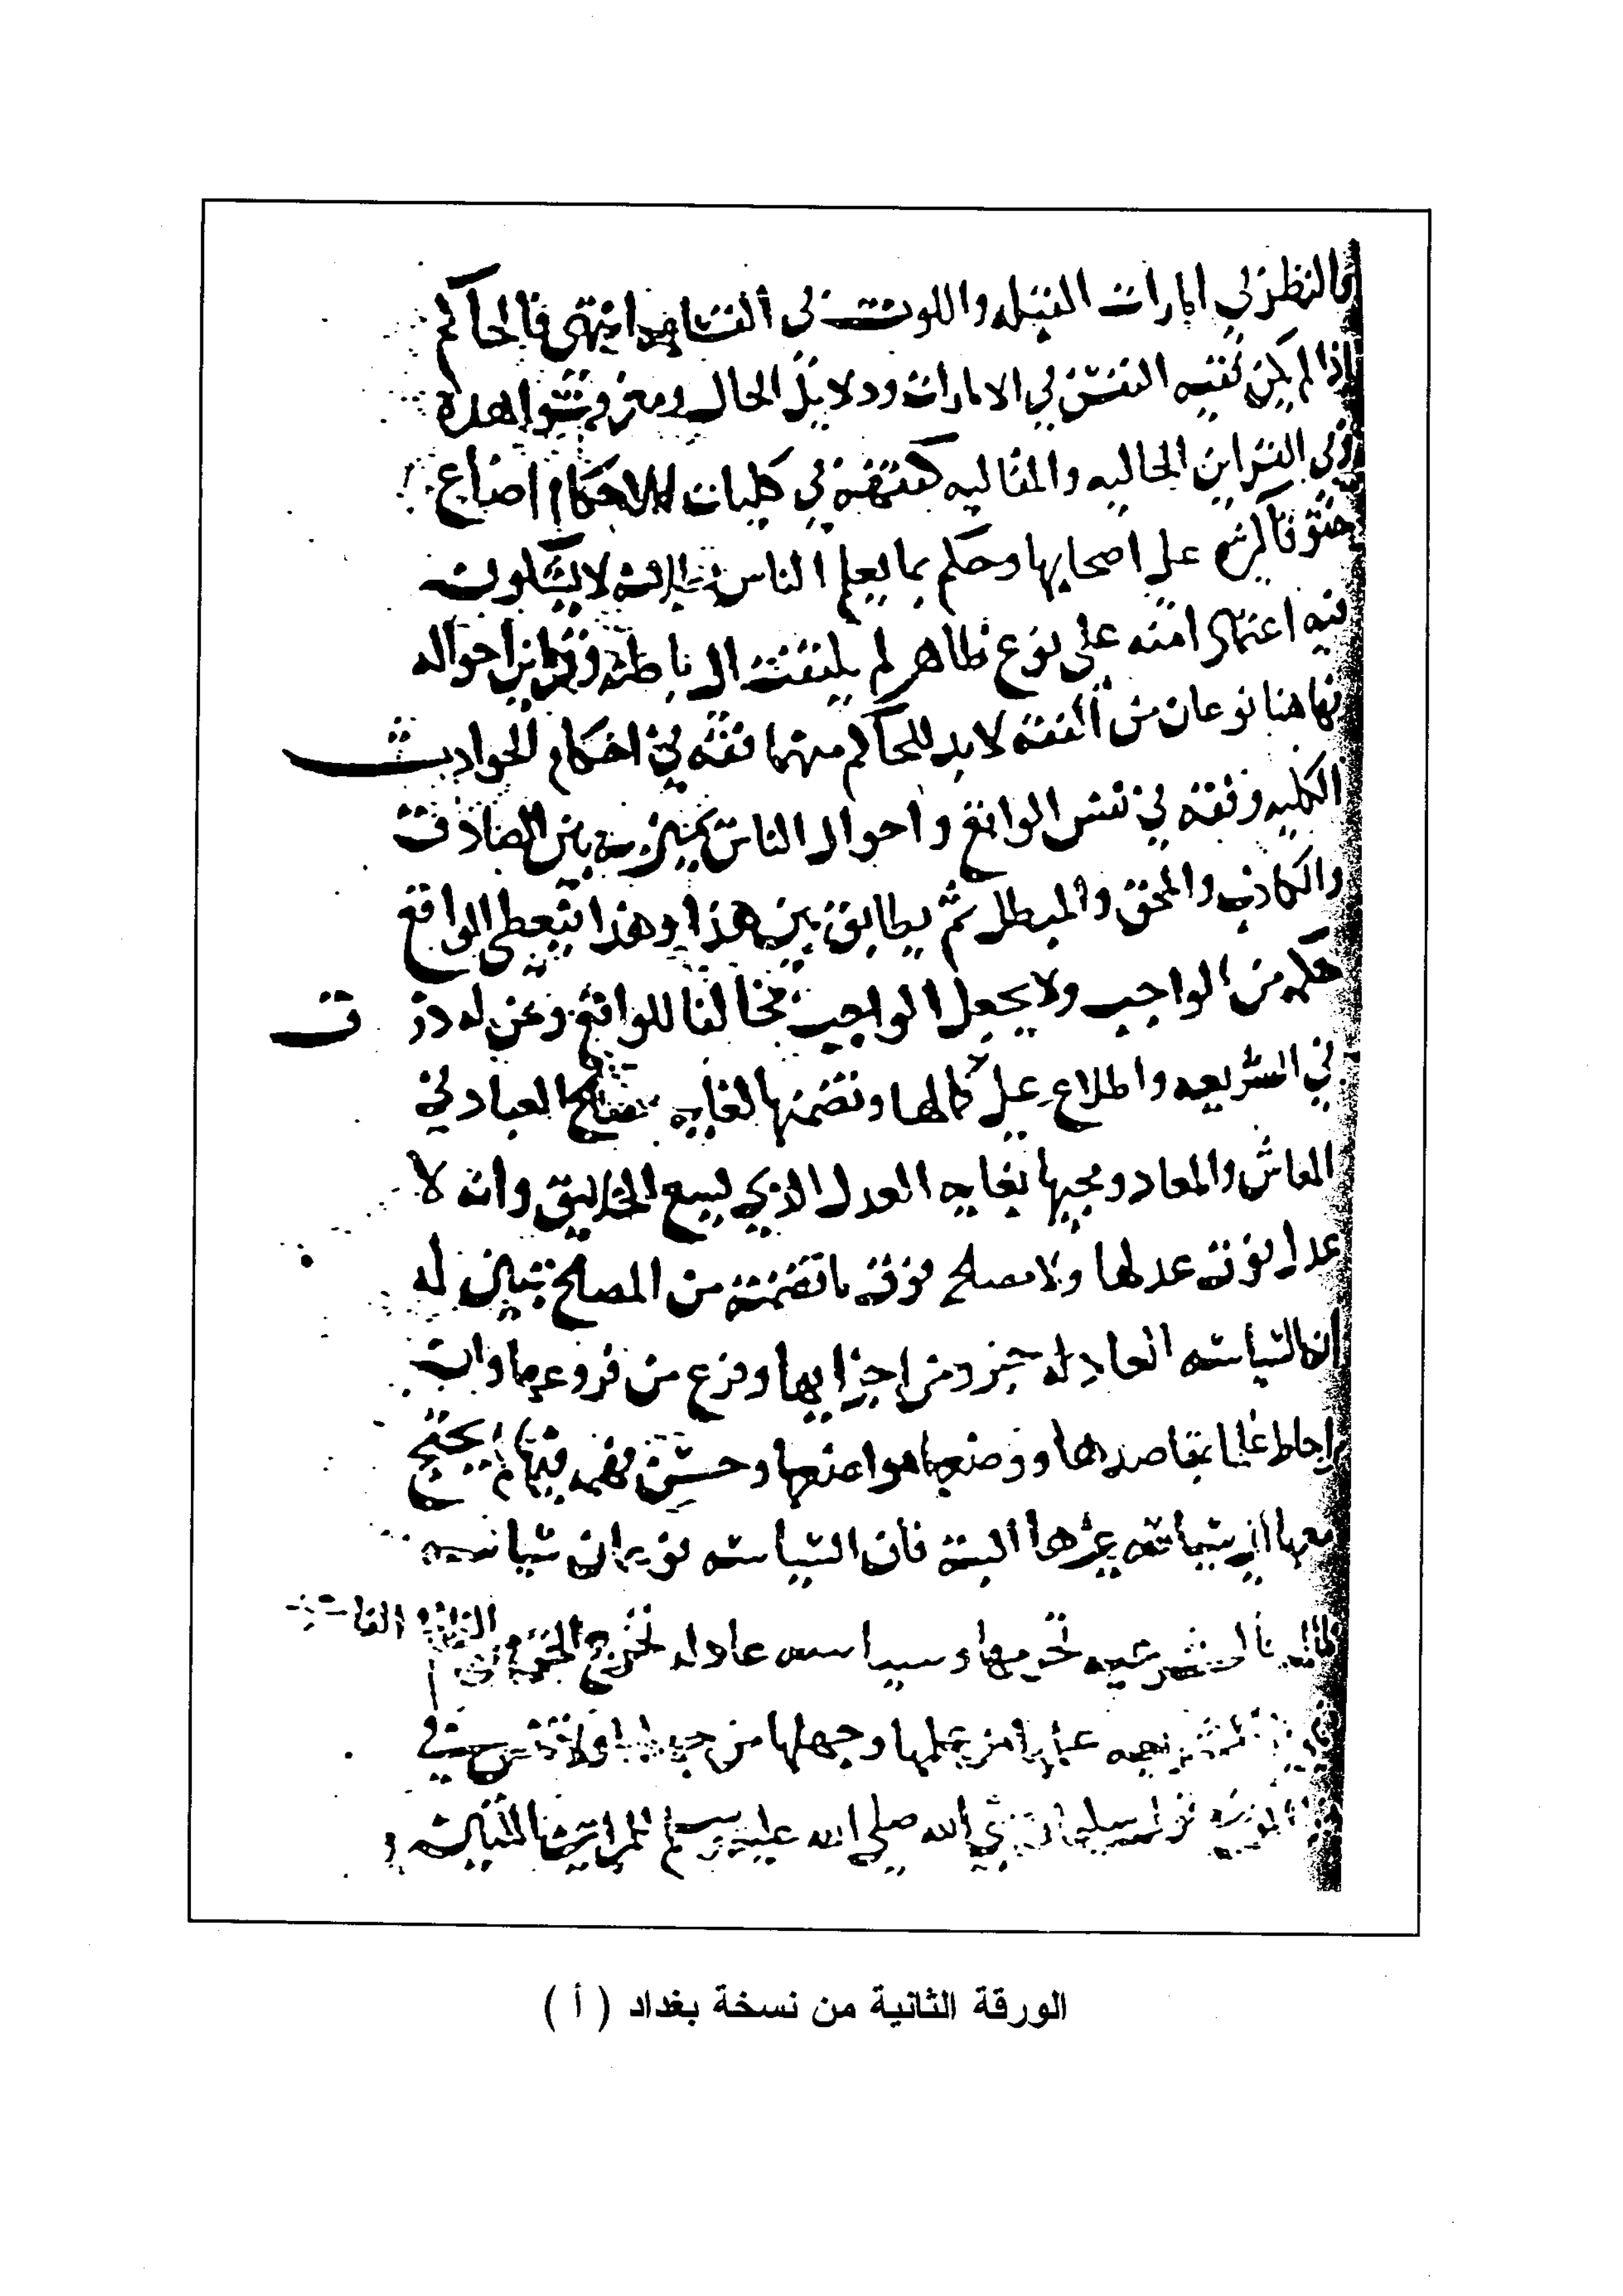 والنظر في امارات القبله واللوث في القسامه انتهى فالحاكم
اذا لم يكن فقيه النفس في الامارات ودلايل الحال ومعرفة شواهده
وفي القراين الحاليه والمقاليه كفقهه في كليات الاحكام اضاع
حقوقا كثيره على اصحابها وحكم بما يعلم الناس بطلانه لا يشكون
فيه اعتمادا منه على نوع ظاهر لم يلتفت الى باطنه وقراين احواله
فهاهنا نوعان من الفقه لا بد للحاكم منهما فقه في احكام الحوادث
الكليه وفقه في نفس الواقع واحوال الناس يميز به بين الصادق
والكاذب والمحق والمبطل ثم يطابق بين هذا وهذا فيعطي الواقع
حكمه من الواجب ولا يجعل الواجب مخالفا للواقع ومن له ذوق
في الشريعه واطلاع على كمالها وتضمنها لغايه مصالح العباد في
المعاش والمعاد ومجيها بغايه العدل الذي يسع الخلايق وانه لا
عدل فوق عدلها ولا مصلحه فوق ما تضمنته من المصالح تبين له
ان السياسه العادله جزو من اجزايها وفرع من فروعها وان من
احاط علما بمقاصدها ووضعها مواضعها وحسن فهمه فيها لم يحتج
معها الى سياسه غيرها البته فان السياسه نوعان سياسه
ظالمه فالشريعه تحرمها وسياسه عادله تخرج الحق من الظالم الفاجر
فهي من الشريعه علمها من علمها وجهلها من جهلها ولا تنس في
هذا الموضع قول سليمان نبي الله صلى الله عليه وسلم للمراتين اللتين
الورقة الثانية من نسخة بغداد ( أ )